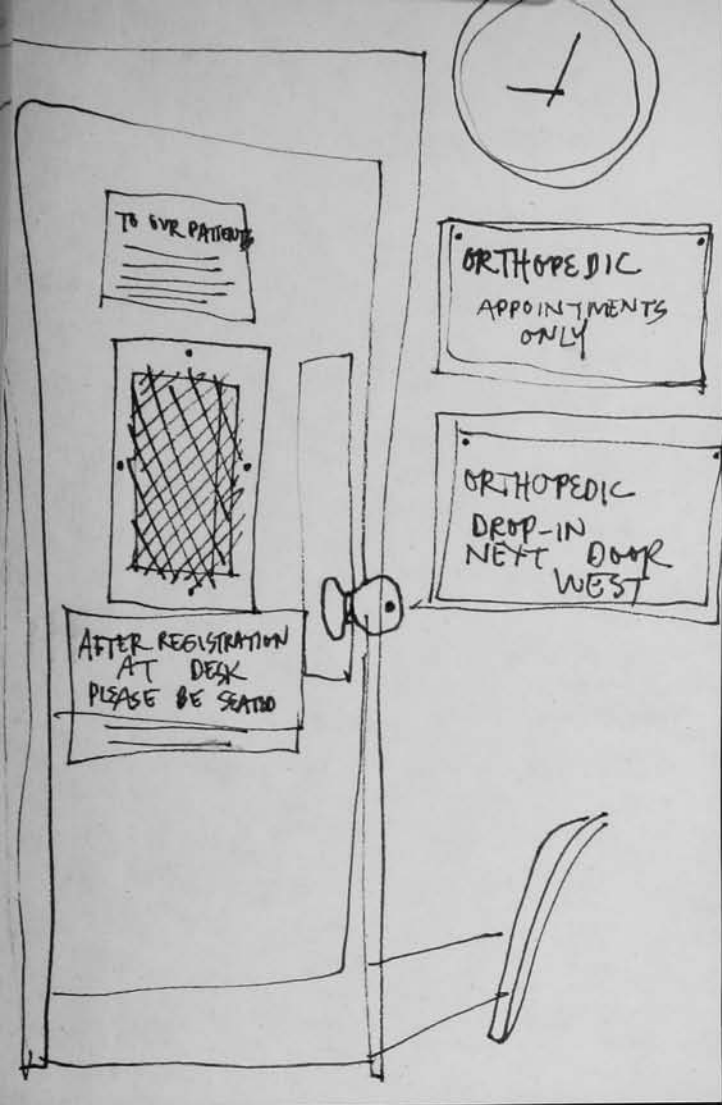 TO OUR PATIENTS
ORTHOPEDIC
APPOINTMENTS
ONLY
ORTHOPEDIC
DROP-IN
NEXT DOOR
WEST
AFTER REGISTRATION
AT DESK
PLEASE BE SEATED